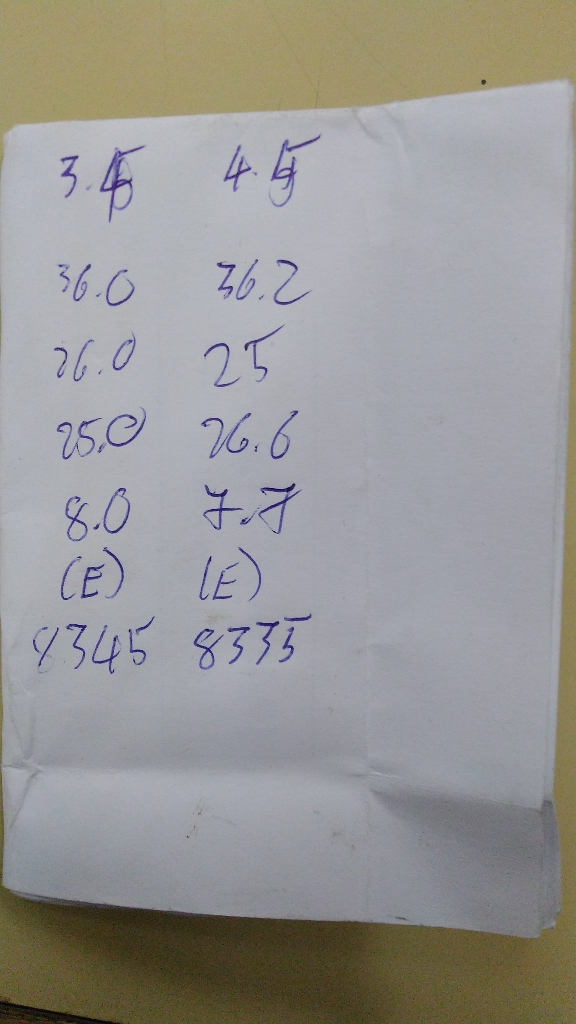 36.0 36.2
26.0 25
25.0 26.6
8.0 7.7
(E) (E)
8345 8335